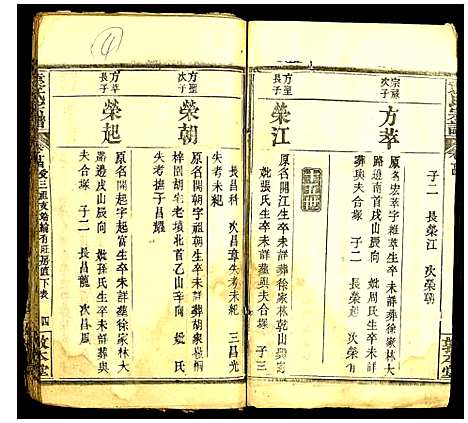 子二 長榮江 次榮朝
宗
次子
方萃
原名宏萃字維萃生卒未詳葬徐家林大
路邊南首戌山辰向 妣周氏生卒未詳
葬與夫合塚 子二 長榮起
方聖
長子
榮江
原名開江生卒未詳葬徐家林乾山
妣張氏生卒未詳葬與夫合塚 子三
長昌科 次昌瑋失考未紀 三昌光
失考未紀
方聖
次子
榮朝
原名開朝字祖朝生卒未詳葬胡家
梓園胡生老墳北首乙山辛向 妣 氏
失考撫子昌耀
方萃
長子
榮起
原名開起字起富生卒未詳葬徐家林大
路邊戌山辰向 妣孫氏生卒未詳葬與
夫合塚 子二 長昌龍 次昌鳳
四
敦本堂
4